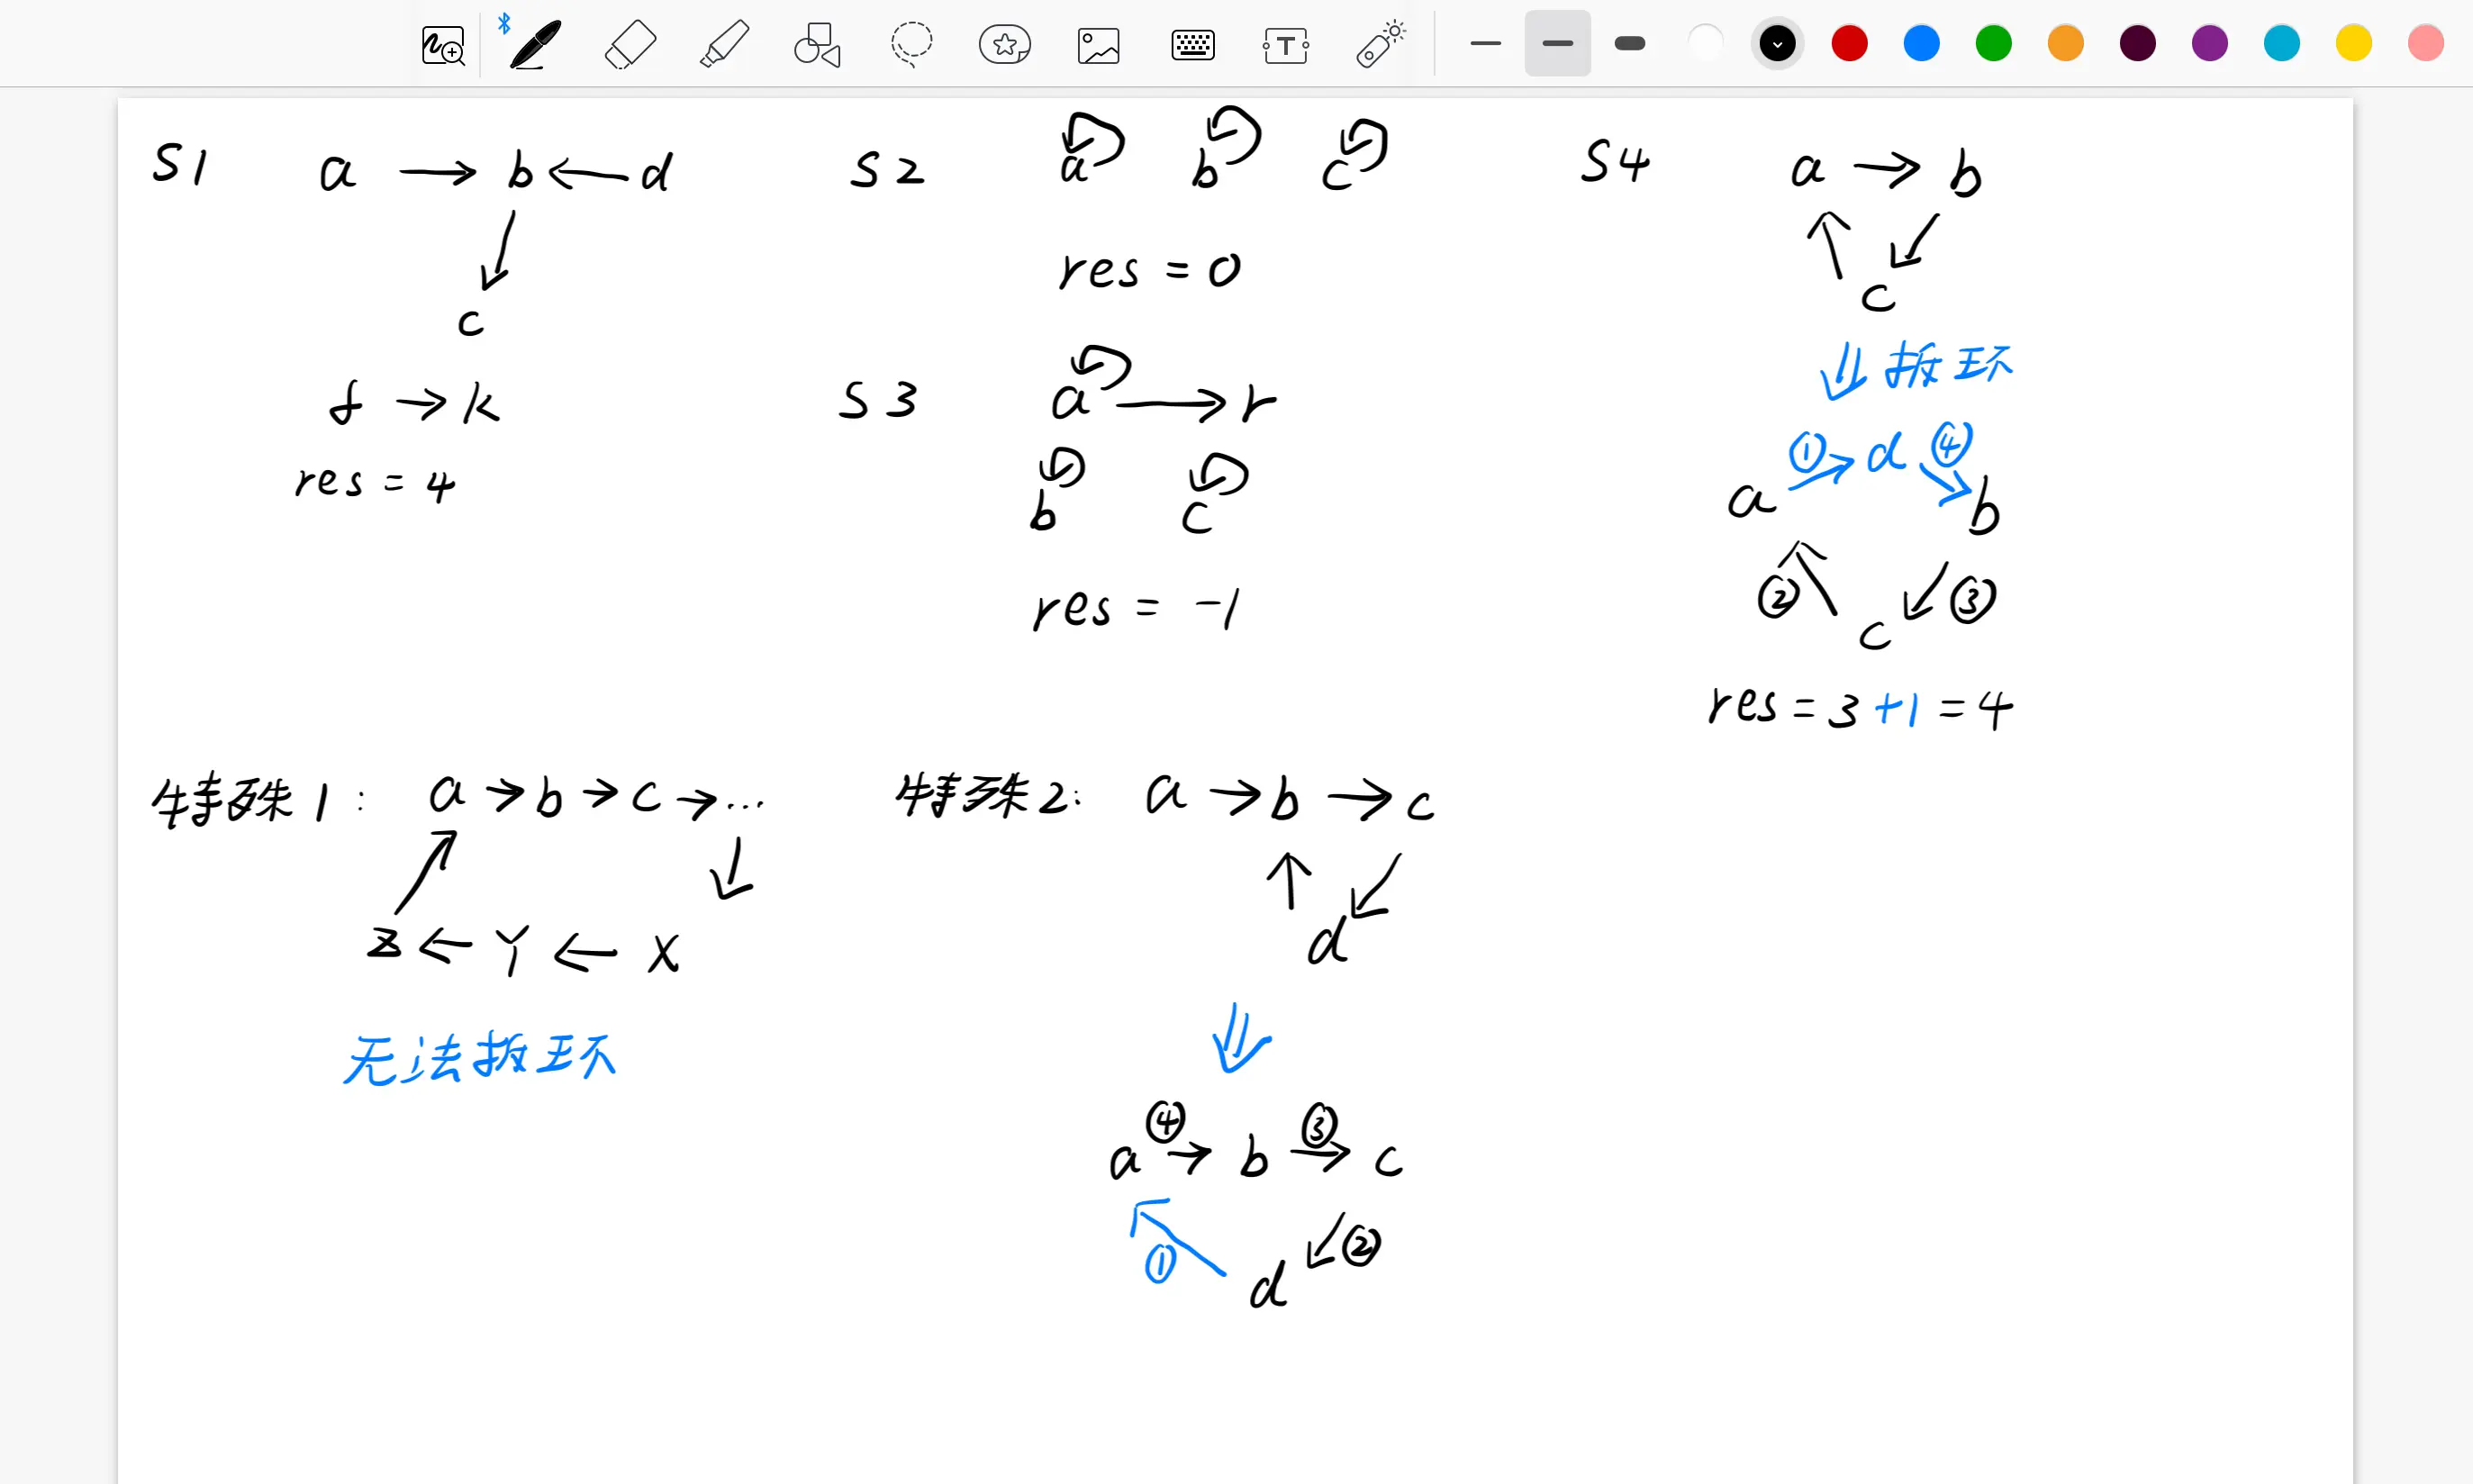 S1 a → b ← d
↓
c
f → k
res = 4
S2 a b c
res = 0
S3 a → r
b c
res = -1
S4 a → b
↑ ↙
c
⇓ 拆环
① ④
a → d ↘ b
② ③
c
res = 3 +1 = 4
特殊1: a → b → c → ...
↗ ↓
z ← Y ← X
无法拆环
特殊2: a → b → c
↑ ↙
d
⇓
④ ③
a → b → c
① ②
d